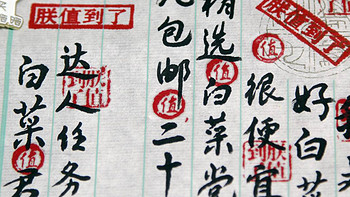 朕值到了
朕值到了
好白菜
很便宜
值
精选白菜党
值
包邮二十
值
达人任务
白菜君
值